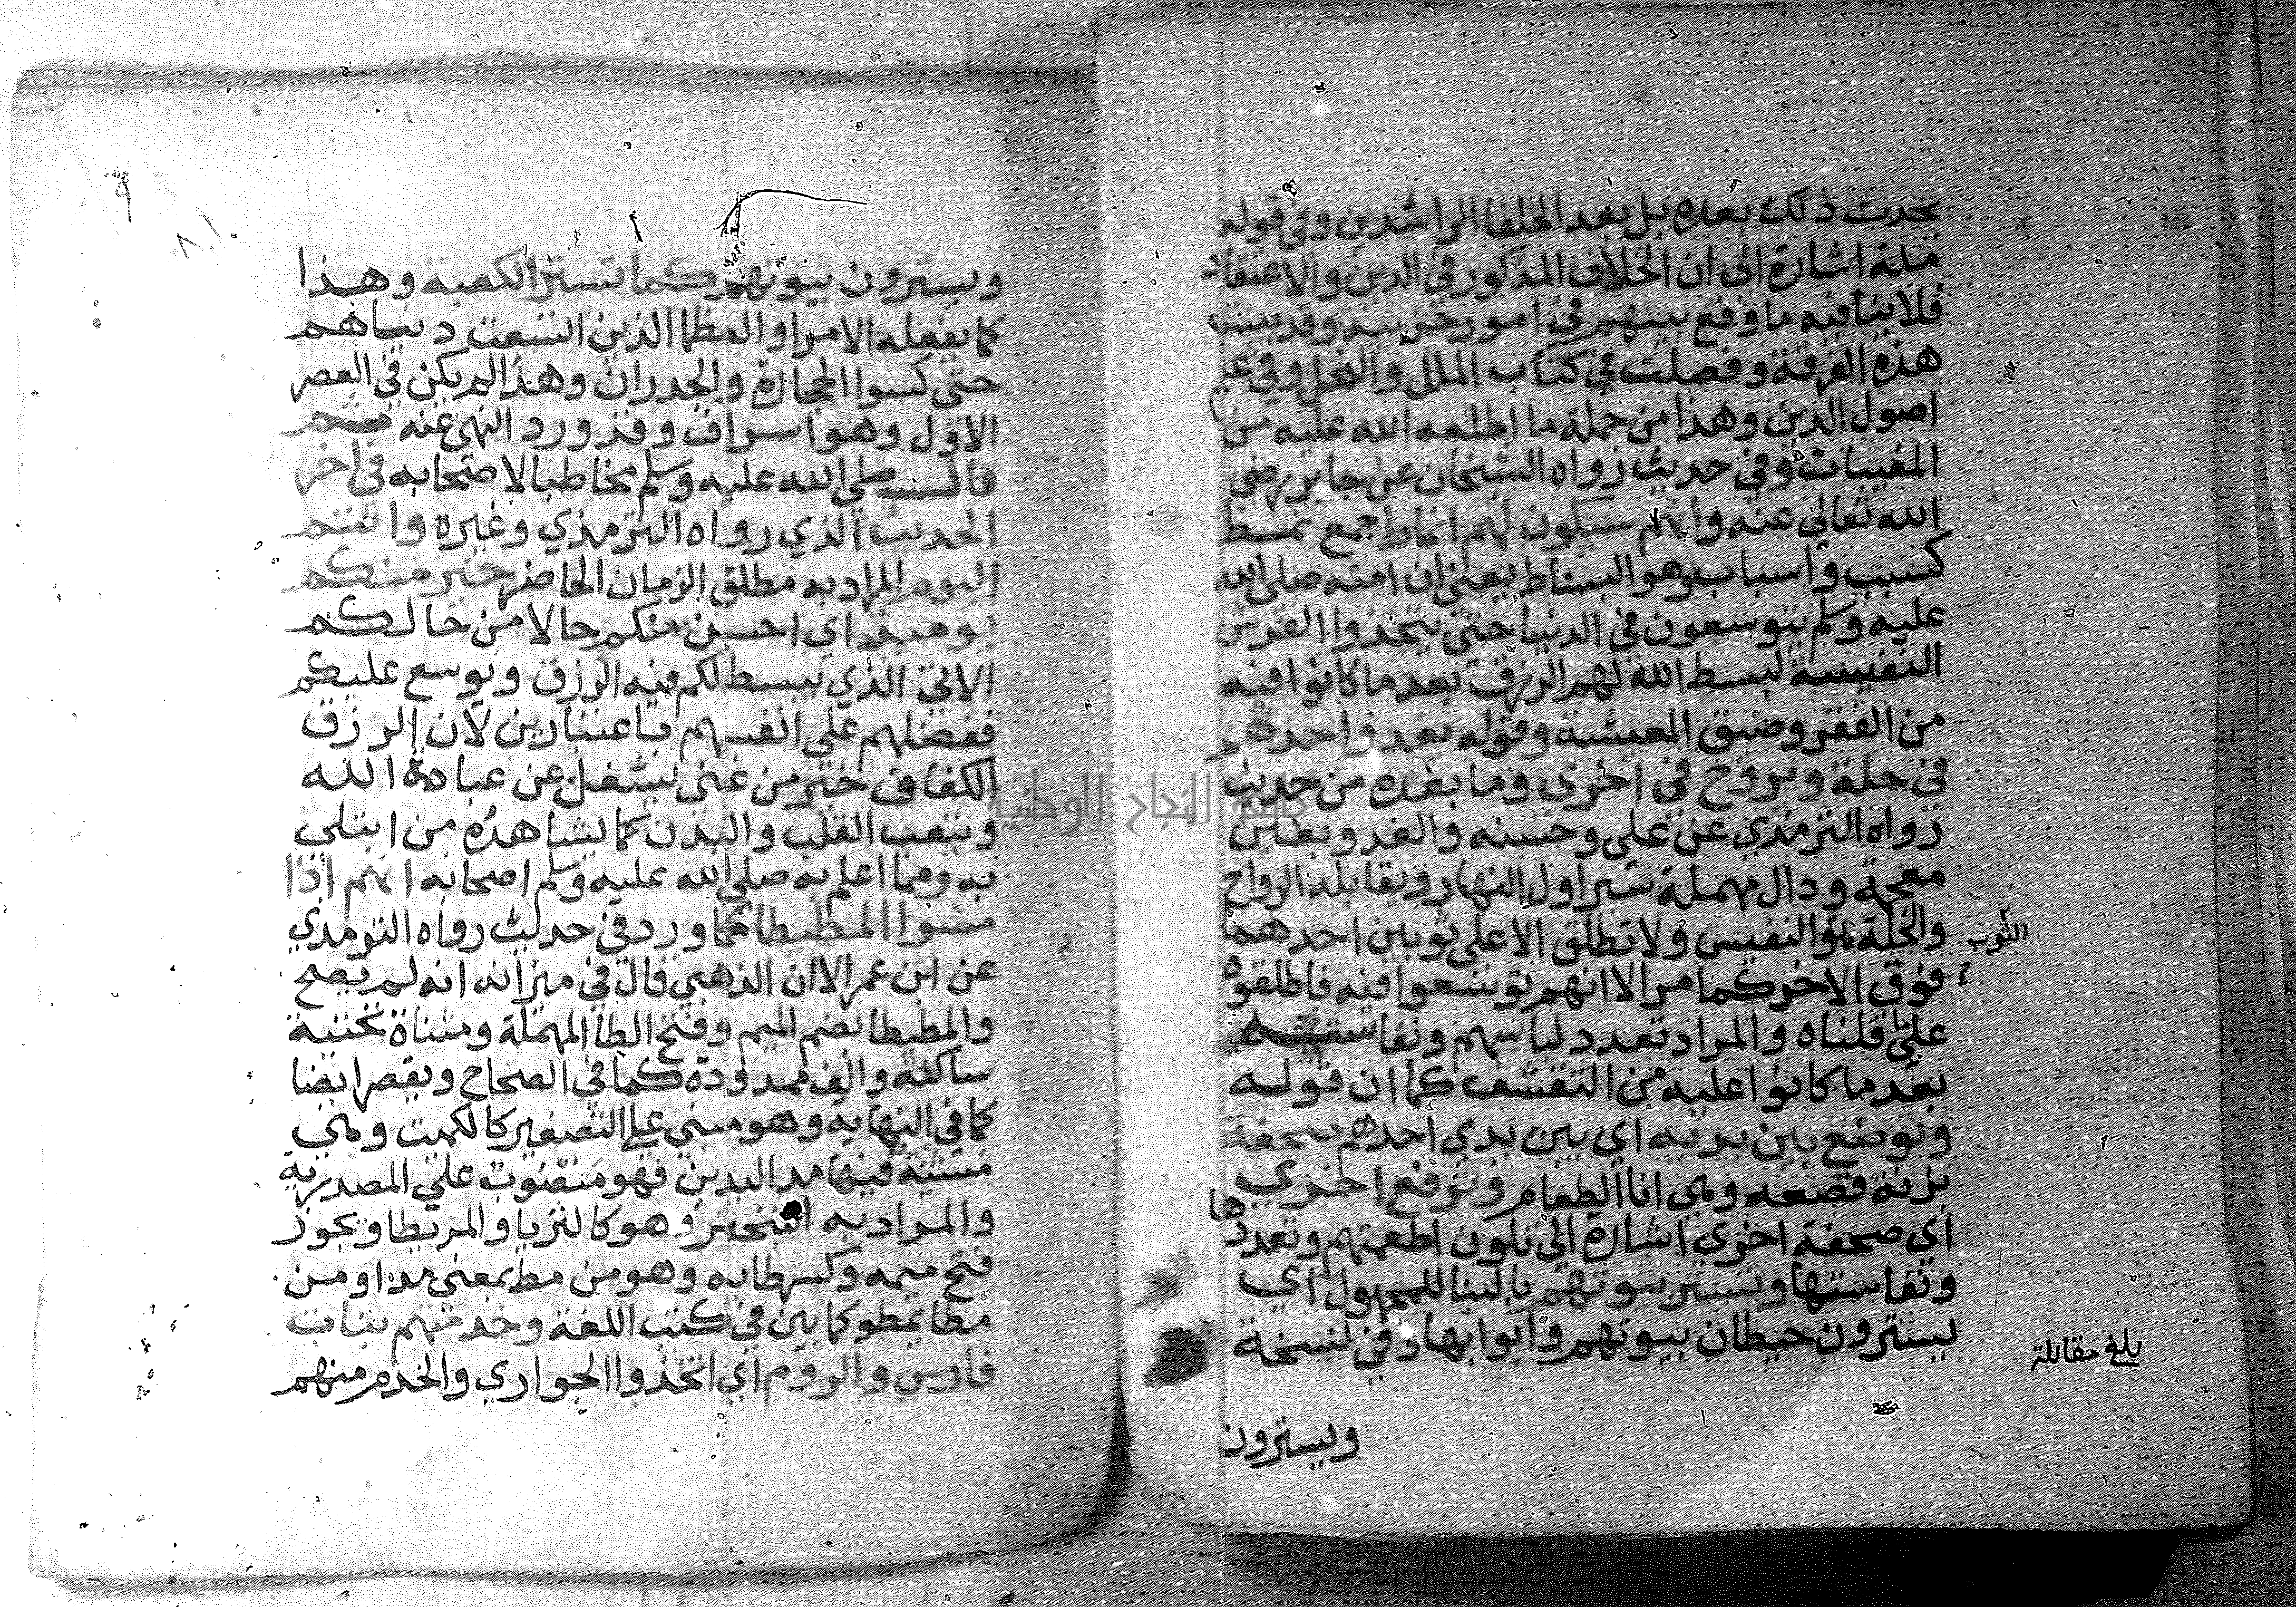 يحدث ذلك بعده بل بعد الخلفا الراشدين وفى قوله
ملة اشارة الى ان الخلاف المذكور فى الدين والاعتقاد
فلا ينافيه ما وقع بينهم فى امور حزبية وقد بينت
هذه الفرقة وفصلت فى كتاب الملل والنحل وفى علم
اصول الدين وهذا من جملة ما اطلعه الله عليه من
المغيبات وفى حديث رواه الشيخان عن جابر رضى
الله تعالى عنه وانهم سيكون لهم انماط جمع نمط
كسبب واسباب وهو البساط يعنى ان امته صلى الله
عليه وسلم يتوسعون فى الدنيا حتى يتخذوا الفرش
النفيسة لبسط الله لهم الرزق بعد ما كانوا فيه
من الفقر وضيق المعيشة وقوله يغدوا احدهم
فى حلة ويروح فى اخرى وما بعده من حديث
رواه الترمذي عن على وحسنه والغدو بغين
معجمة ودال مهملة سير اول النهار ويقابله الرواح
والحلة الثوب النفيس ولا تطلق الا على ثوبين احدهما
فوق الاخر كما مر الا انهم توسعوا فيه فاطلقوه
على ما قلناه والمراد تعدد لباسهم ونفاسته
بعد ما كانوا عليه من التقشف كما ان قوله
وتوضع بين يديه اى بين يدي احدهم صحفة
بزنة قصعه وهي انا الطعام وترفع اخري
اي صحفة اخري اشارة الى تلون اطعمتهم وتعددها
ونفاستها وتستر بيوتهم بالبنا للمجهول اي
يسترون حيطان بيوتهم وابوابها وفى نسخة
بلغ مقابلة
ويسترون
٩
٨١
ويسترون بيوتهم كما تستر الكعبة وهذا
كما يفعله الامرا والعظما الذين اتسعت دنياهم
حتى كسوا الحجارة والجدران وهذا لم يكن فى العصر
الاول وهو اسراف وقد ورد النهى عنه ثم
قال صلى الله عليه وسلم مخاطبا لاصحابه فى اخر
الحديث الذي رواه الترمذي وغيره وانتم
اليوم المراد به مطلق الزمان الحاضر خير منكم
يومئذ اى احسن منكم حالا من حالكم
الاتى الذي يبسط لكم فيه الرزق ويوسع عليكم
ففضلهم على انفسهم باعتبارين لان الرزق
الكفاف خير من غنى يشغل عن عبادة الله
ويتعب القلب والبدن كما يشاهده من ابتلى
به ومما اعلم به صلى الله عليه وسلم اصحابه انهم اذا
مشوا المطيطا كما ورد فى حديث رواه الترمذي
عن ابن عمر الا ان الذهبي قال فى ميزانه انه لم يصح
والمطيطا بضم الميم وفتح الطا المهملة ومثناة تحتية
ساكنة والف ممدودة كما فى الصحاح ويقصر ايضا
كما فى النهايه وهو مبني على التصغير كالكميت وهي
مشية فيها مد اليدين فهو منصوب على المصدرية
والمراد به التبختر وهو كالثريا والمريطا ويجوز
فتح ميمه وكسر طايه وهو من مط بمعنى مد او من
مطا يمطو كما بين فى كتب اللغة وخدمتهم بنات
فارس والروم اي اتخذوا الجواري والخدم منهم
جامعة النجاح الوطنية